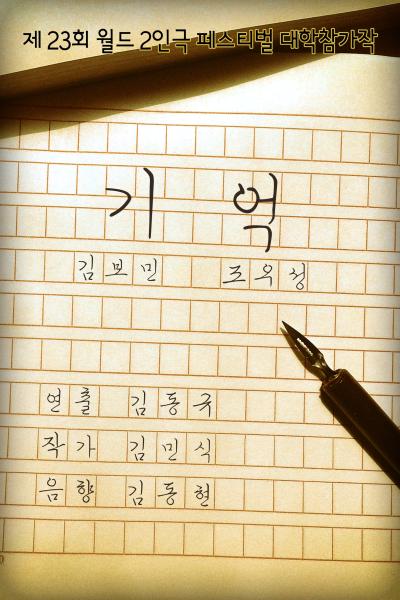 제 23회 월드 2인극 페스티벌 대학참가작
기 억
김보민 조우성
연출 김동국
작가 김민식
음향 김동현